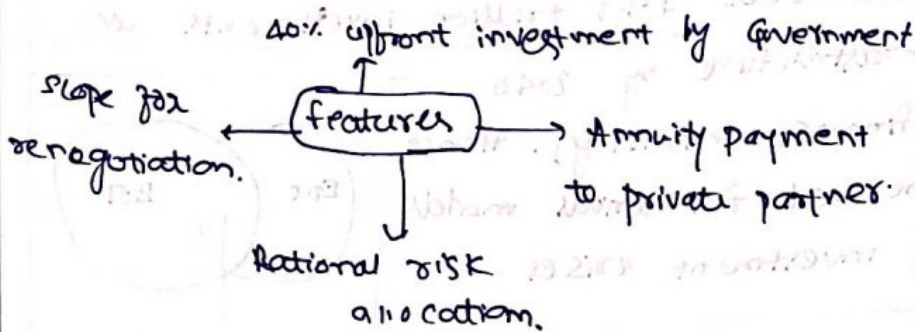 40% upfront investment by Government
Slope for
renegotiation.
features
Annuity payment
to private partner.
Rational risk
allocation.